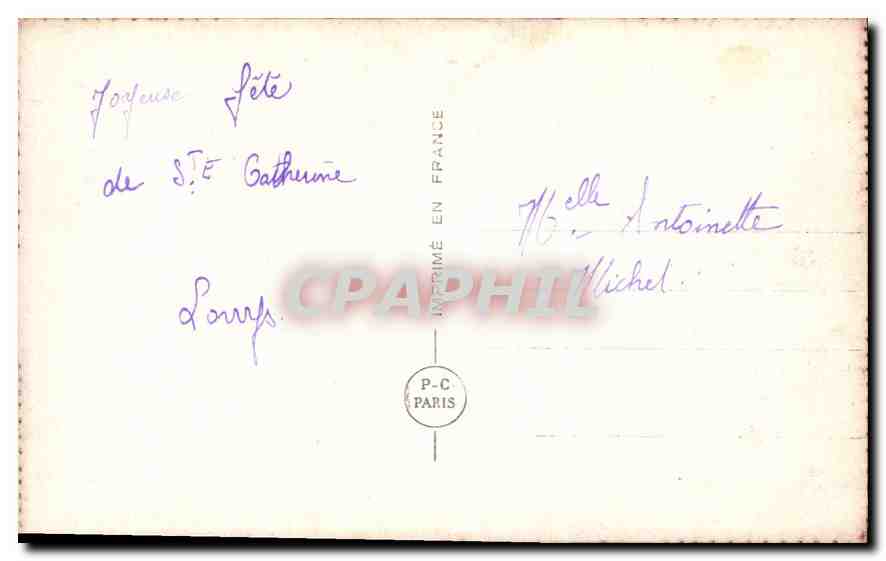 Joyeuse fête
de Ste Catherine
IMPRIMÉ EN FRANCE
P-C
PARIS
Melle Antoinette
Michel.
CPAPHIL